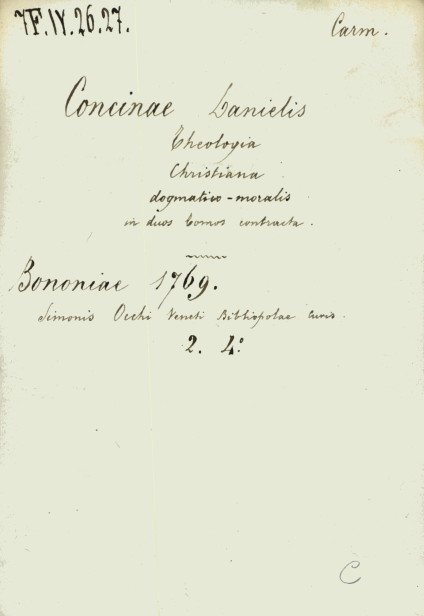 7F.IV.26.27.
Carm.
Concinae Danielis
Theologia
Christiana
dogmatico-moralis
in duos tomos contracta.
Bononiae 1769.
Simonis Occhi Veneti Bibliopolae curis.
2. 4º
C